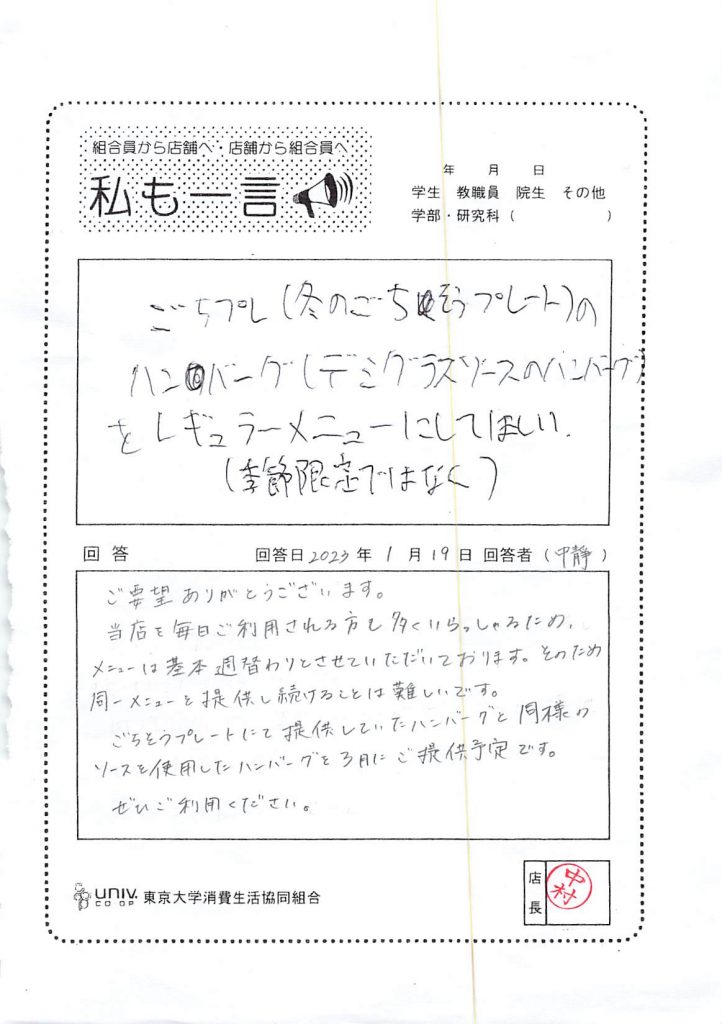 組合員から店舗へ・店舗から組合員へ
私も一言
年 月 日
学生 教職員 院生 その他
学部・研究科( )
ごちプレ(冬のごちそうプレート)の
ハンバーグ(デミグラスソースのハンバーグ)
をレギュラーメニューにしてほしい.
(季節限定ではなく)
回答 回答日2023年1月19日 回答者(中静)
ご要望ありがとうございます。
当店を毎日ご利用される方も多くいらっしゃるため、
メニューは基本週替わりとさせていただいております。そのため
同一メニューを提供し続けることは難しいです。
ごちそうプレートにて提供していたハンバーグと同様の
ソースを使用したハンバーグを3月にご提供予定です。
ぜひご利用ください。
univ. CO-OP 東京大学消費生活協同組合
店長 中村